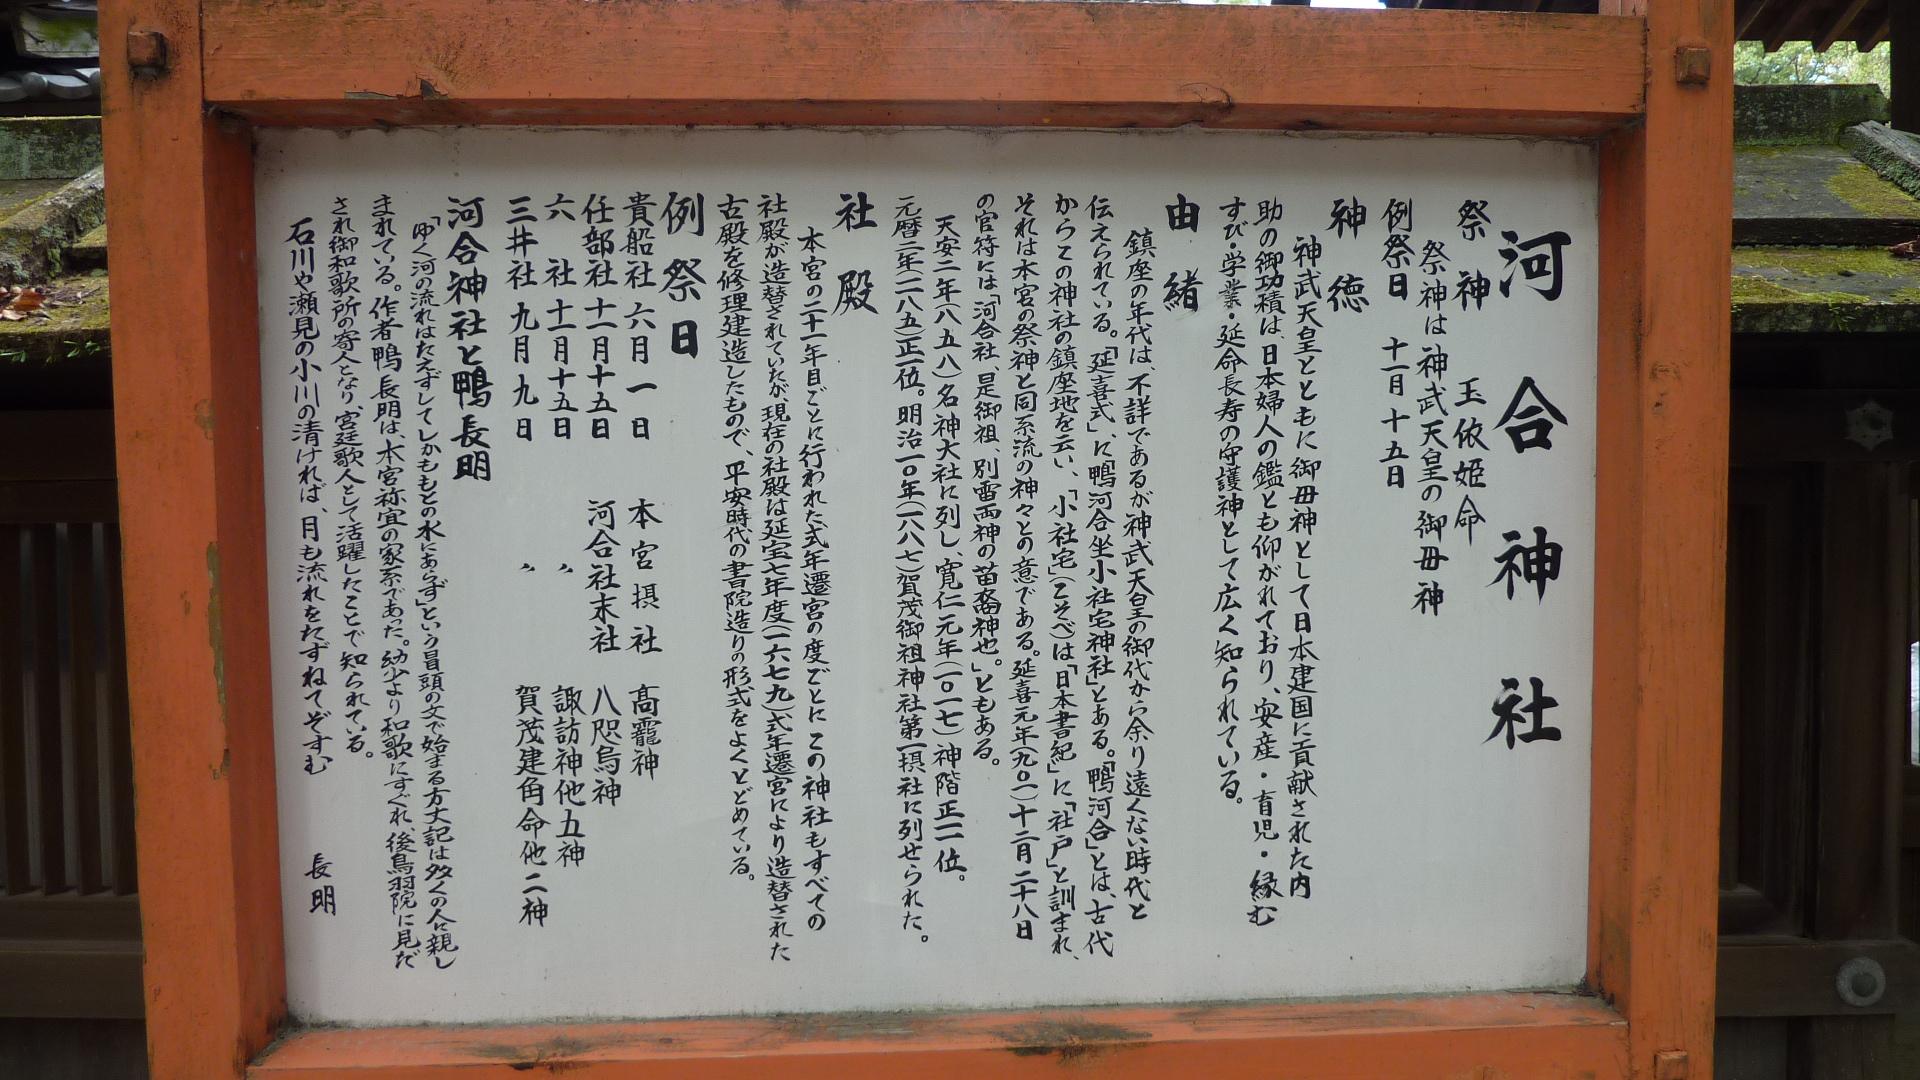 河合神社
祭神 玉依姫命
祭神は神武天皇の御母神
例祭日 十一月十五日
神徳
神武天皇とともに御母神として日本建国に貢献された内
助の御功積は、日本婦人の鑑とも仰がれており、安産・育児・縁む
すび・学業・延命長寿の守護神として広く知られている。
由緒
鎮座の年代は、不詳であるが神武天皇の御代から余り遠くない時代と
伝えられている。「延喜式」に「鴨河合坐小社宅神社」とある。「鴨河合」とは、古代
からこの神社の鎮座地を云い、「小社宅」(こそべ)は「日本書紀」に「社戸」と訓まれ、
それは本宮の祭神と同系流の神々との意である。延喜元年(九〇一)十二月二十八日
の官符には「河合社、是御祖、別雷両神の苗裔神也。」ともある。
天安二年(八五八)名神大社に列し、寛仁元年(一〇一七)神階正二位。
元暦二年(一一八五)正一位。明治一〇年(一八八七)賀茂御祖神社第一摂社に列せられた。
社殿
本宮の二十一年目ごとに行われた式年遷宮の度ごとにこの神社もすべての
社殿が造替されていたが、現在の社殿は延宝七年度(一六七九)式年遷宮により造替された
古殿を修理建造したもので、平安時代の書院造りの形式をよくとどめている。
例祭日
貴船社 六月一日 本宮摂社 高龗神
任部社 十一月十五日 河合社末社 八咫烏神
六社 十一月十五日 〃 諏訪神他五神
三井社 九月九日 〃 賀茂建角命他二神
河合神社と鴨長明
「ゆく河の流れはたえずしてしかももとの水にあらず」という冒頭の文で始まる方丈記は多くの人に親し
まれている。作者鴨長明は、本宮祢宜の家系であった。幼少より和歌にすぐれ、後鳥羽院に見だ
され御和歌所の寄人となり、宮廷歌人として活躍したことで知られている。
石川や瀬見の小川の清ければ、月も流れをたずねてぞすむ 長明